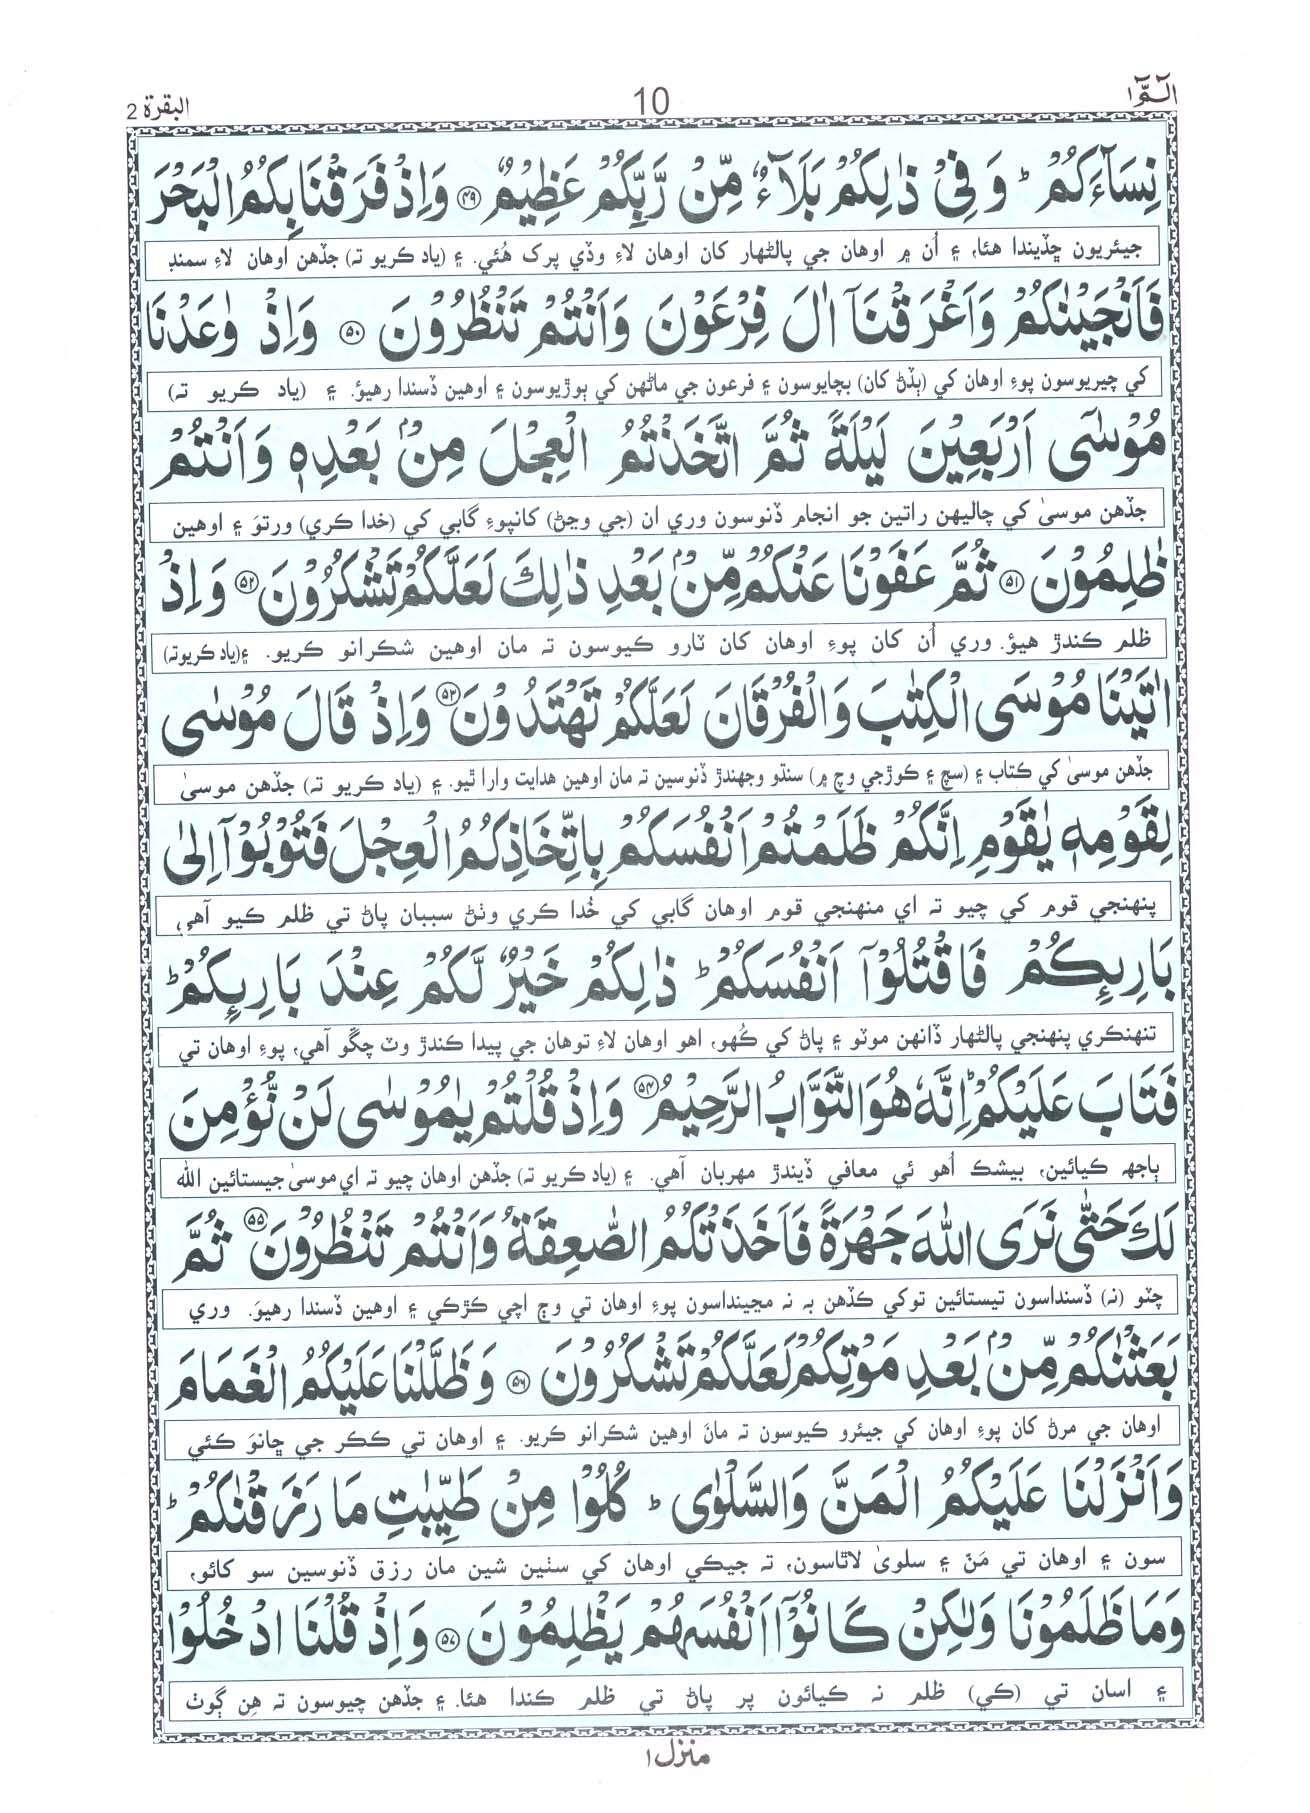 الٓمّٓ ١ 10 البقرة 2
نِسَآءَكُمْ ؕ وَ فِیْ ذٰلِكُمْ بَلَآءٌ مِّنْ رَّبِّكُمْ عَظِیْمٌ ﴿۴۹﴾ وَ اِذْ فَرَقْنَا بِكُمُ الْبَحْرَ
جيئريون ڇڏيندا هئا، ۽ اُن ۾ اوهان جي پالڻهار کان اوهان لاءِ وڏي پرک هُئي. ۽ (ياد ڪريو تہ) جڏهن اوهان لاءِ سمنڊ
فَاَنْجَیْنٰكُمْ وَ اَغْرَقْنَاۤ اٰلَ فِرْعَوْنَ وَ اَنْتُمْ تَنْظُرُوْنَ ﴿۵۰﴾ وَ اِذْ وٰعَدْنَا
کي چيريوسون پوءِ اوهان کي (ٻڏڻ کان) بچايوسون ۽ فرعون جي ماڻهن کي ٻوڙيوسون ۽ اوهين ڏسندا رهيؤ. ۽ (ياد ڪريو تہ)
مُوْسٰۤی اَرْبَعِیْنَ لَیْلَةً ثُمَّ اتَّخَذْتُمُ الْعِجْلَ مِنْۢ بَعْدِهٖ وَ اَنْتُمْ
جڏهن موسيٰ کي چاليهن راتين جو انجام ڏنوسون وري ان (جي وڃڻ) کانپوءِ گابي کي (خدا ڪري) ورتوَ ۽ اوهين
ظٰلِمُوْنَ ﴿۵۱﴾ ثُمَّ عَفَوْنَا عَنْكُمْ مِّنْۢ بَعْدِ ذٰلِكَ لَعَلَّكُمْ تَشْكُرُوْنَ ﴿۵۲﴾ وَ اِذْ
ظلم ڪندڙ هيؤ. وري اُن کان پوءِ اوهان کان ٽارو ڪيوسون تہ مان اوهين شڪرانو ڪريو. ۽(ياد ڪريوتہ)
اٰتَیْنَا مُوْسَی الْكِتٰبَ وَ الْفُرْقَانَ لَعَلَّكُمْ تَهْتَدُوْنَ ﴿۵۳﴾ وَ اِذْ قَالَ مُوْسٰی
جڏهن موسيٰ کي ڪتاب ۽ (سچ ۽ ڪوڙجي وچ ۾) سنڌو وجهندڙ ڏنوسين تہ مان اوهين هدايت وارا ٿيو. ۽ (ياد ڪريو تہ) جڏهن موسيٰ
لِقَوْمِهٖ یٰقَوْمِ اِنَّكُمْ ظَلَمْتُمْ اَنْفُسَكُمْ بِاتِّخَاذِكُمُ الْعِجْلَ فَتُوْبُوْۤا اِلٰی
پنهنجي قوم کي چيو تہ اي منهنجي قوم اوهان گابي کي خُدا ڪري وٺڻ سببان پاڻ تي ظلم ڪيو آهي،
بَارِىِٕكُمْ فَاقْتُلُوْۤا اَنْفُسَكُمْ ؕ ذٰلِكُمْ خَیْرٌ لَّكُمْ عِنْدَ بَارِىِٕكُمْ ؕ
تنهنڪري پنهنجي پالڻهار ڏانهن موٽو ۽ پاڻ کي ڪُهو، اهو اوهان لاءِ توهان جي پيدا ڪندڙ وٽ چڱو آهي، پوءِ اوهان تي
فَتَابَ عَلَیْكُمْ ؕ اِنَّهٗ هُوَ التَّوَّابُ الرَّحِیْمُ ﴿۵۴﴾ وَ اِذْ قُلْتُمْ یٰمُوْسٰی لَنْ نُّؤْمِنَ
ٻاجهہ ڪيائين، بيشڪ اُهو ئي معافي ڏيندڙ مهربان آهي. ۽ (ياد ڪريو تہ) جڏهن اوهان چيو تہ اي موسيٰ جيستائين الله
لَكَ حَتّٰی نَرَی اللّٰهَ جَهْرَةً فَاَخَذَتْكُمُ الصّٰعِقَةُ وَ اَنْتُمْ تَنْظُرُوْنَ ﴿۵۵﴾ ثُمَّ
چٽو (نہ) ڏسنداسون تيستائين توکي ڪڏهن بہ نہ مڃينداسون پوءِ اوهان تي وڄ اچي ڪڙڪي ۽ اوهين ڏسندا رهيوَ. وري
بَعَثْنٰكُمْ مِّنْۢ بَعْدِ مَوْتِكُمْ لَعَلَّكُمْ تَشْكُرُوْنَ ﴿۵۶﴾ وَ ظَلَّلْنَا عَلَیْكُمُ الْغَمَامَ
اوهان جي مرڻ کان پوءِ اوهان کي جيئرو ڪيوسون تہ مانَ اوهين شڪرانو ڪريو. ۽ اوهان تي ڪڪر جي ڇانوَ ڪئي
وَ اَنْزَلْنَا عَلَیْكُمُ الْمَنَّ وَ السَّلْوٰی ؕ كُلُوْا مِنْ طَیِّبٰتِ مَا رَزَقْنٰكُمْ ؕ
سون ۽ اوهان تي مَنّ ۽ سلويٰ لاٿاسون، تہ جيڪي اوهان کي سٺين شين مان رزق ڏنوسين سو کائو،
وَ مَا ظَلَمُوْنَا وَ لٰكِنْ كَانُوْۤا اَنْفُسَهُمْ یَظْلِمُوْنَ ﴿۵۷﴾ وَ اِذْ قُلْنَا ادْخُلُوْا
۽ اسان تي (ڪي) ظلم نہ ڪيائون پر پاڻ تي ظلم ڪندا هئا. ۽ جڏهن چيوسون تہ هِن ڳوٺ
منزل ١